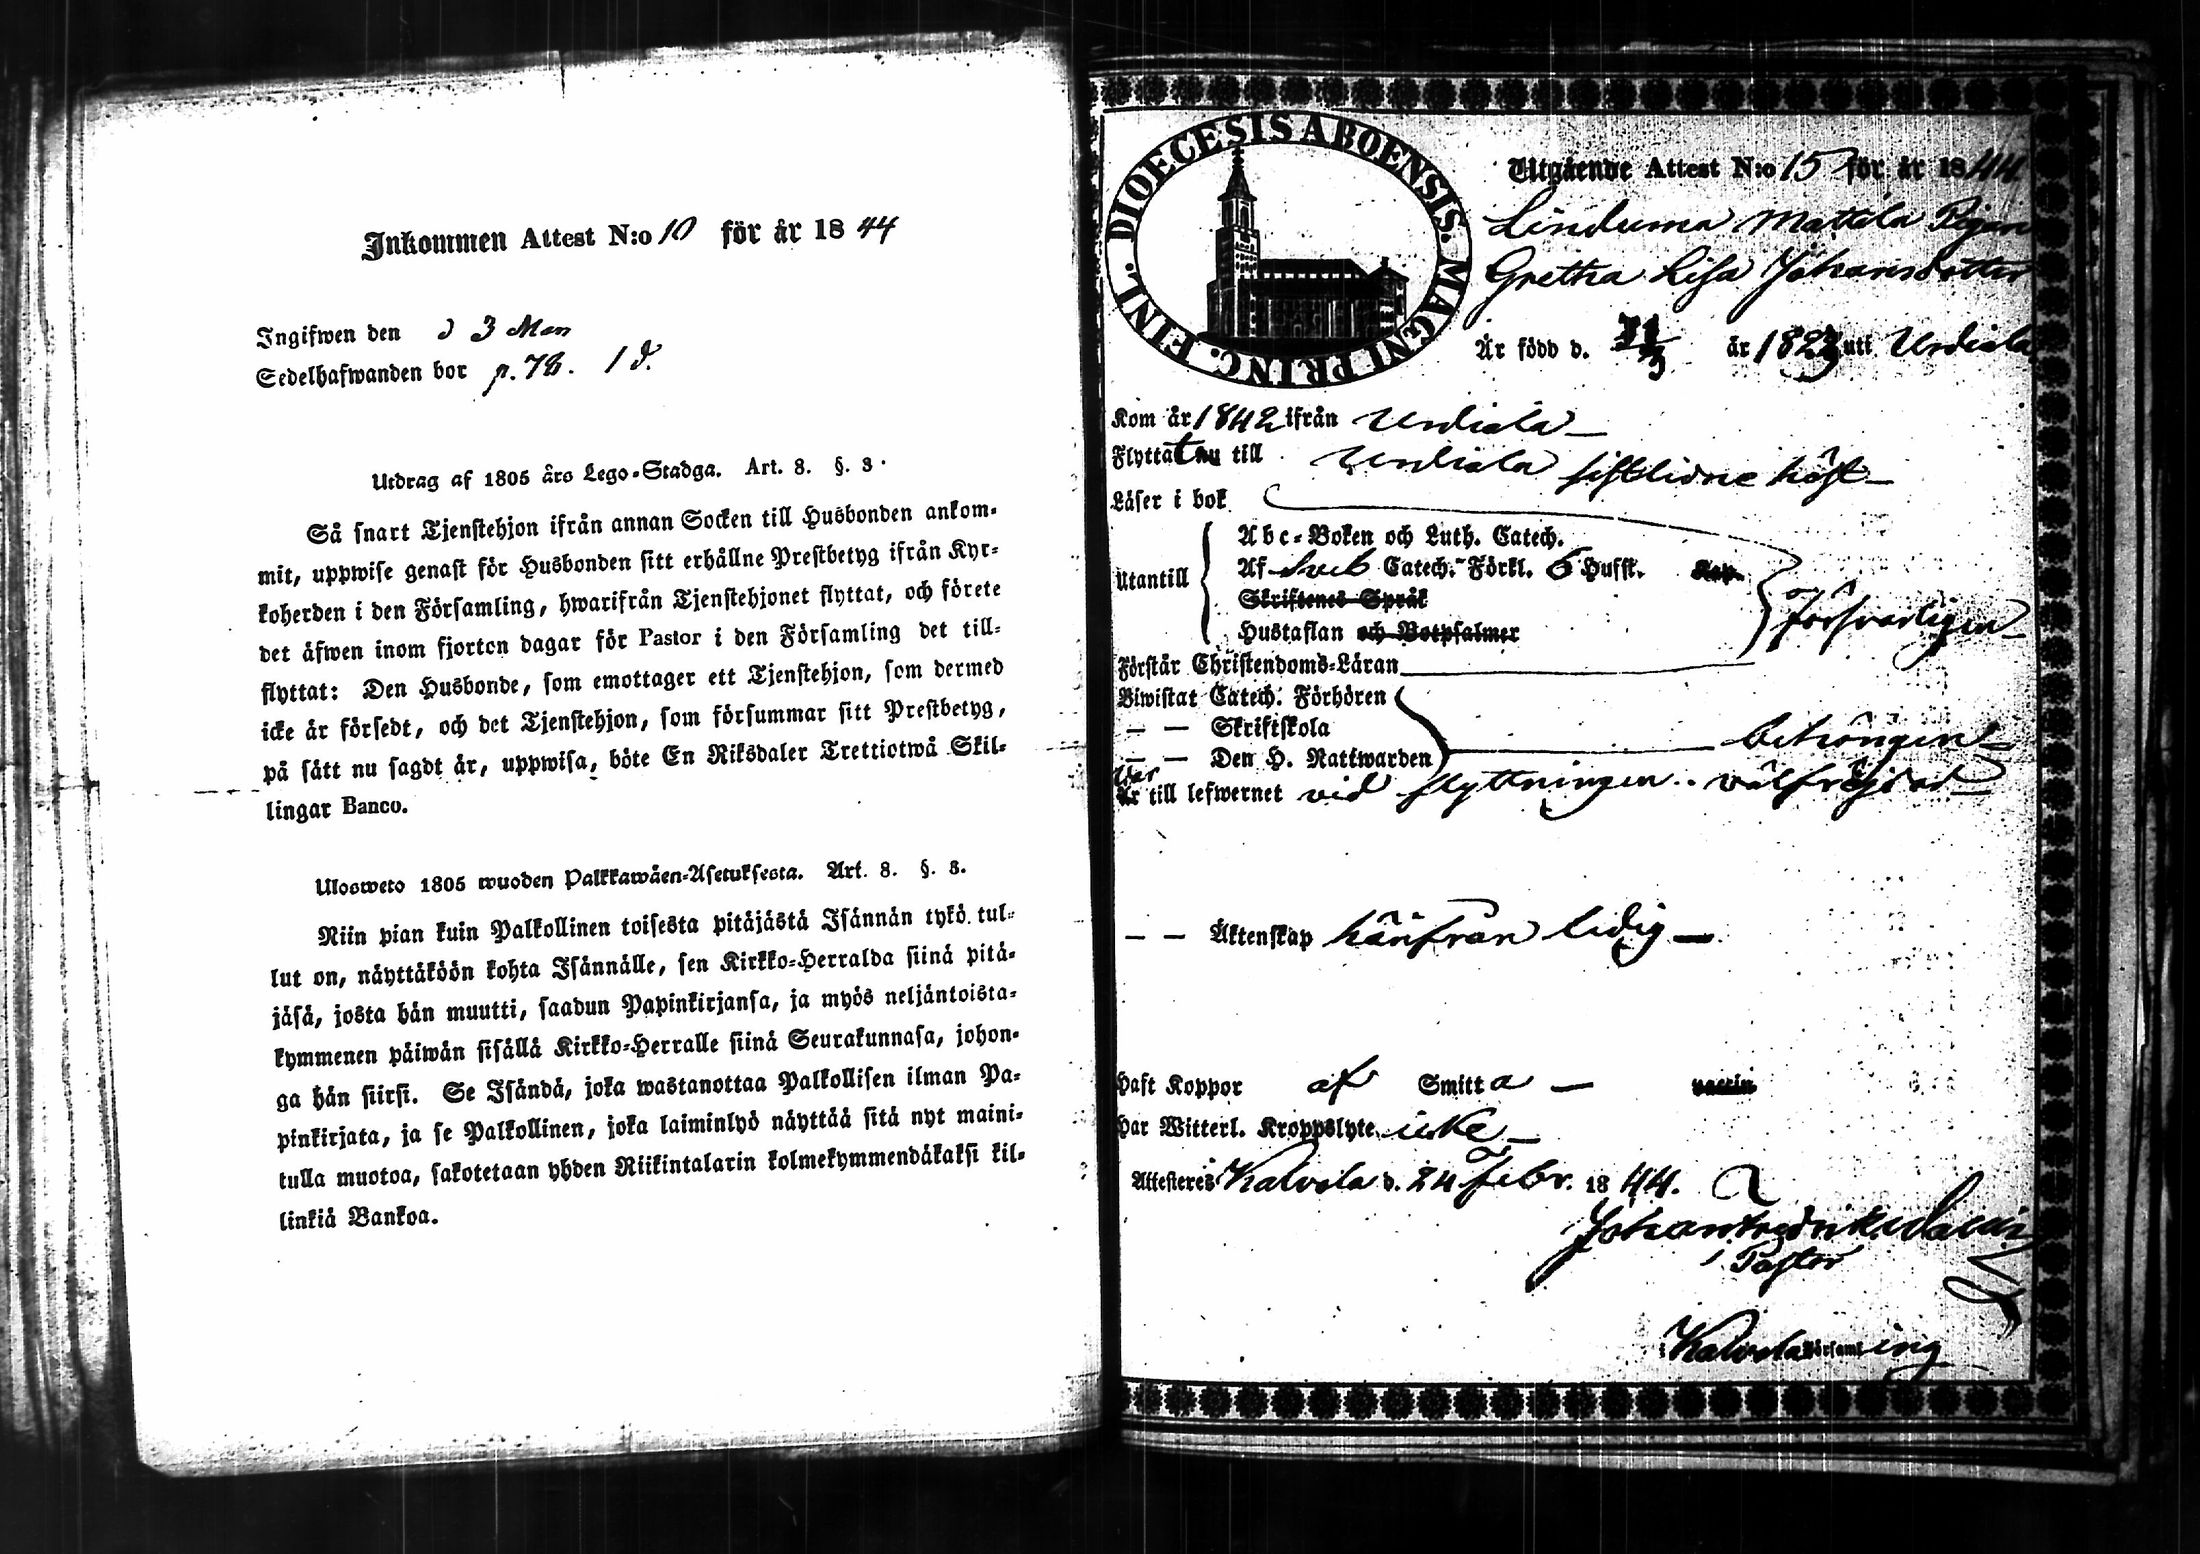 Inkommen Attest N:o 10 för år 1844
Ingifwen den d 3 Mars
Sedelhafwanden bor p. 78. 1 d.
Utdrag af 1805 års Lego-Stadga. Art. 8. §. 3.
Så snart Tjenstehjon ifrån annan Socken till Husbonden ankom-
mit, uppwise genast för Husbonden sitt erhållne Prestbetyg ifrån Kyr-
koherden i den Församling, hwarifrån Tjenstehjonet flyttat, och förete
det äfwen inom fjorton dagar för Pastor i den Församling det till-
flyttat: Den Husbonde, som emottager ett Tjenstehjon, som dermed
icke är försedt, och det Tjenstehjon, som försummar sitt Prestbetyg,
på sätt nu sagdt är, uppwisa, böte En Riksdaler Trettiotwå Skil-
lingar Banco.
Ulosweto 1805 wuoden Palkkawäen-Asetuksesta. Art. 8. §. 3.
Niin pian kuin Palkollinen toisesta pitäjästä Isännän tykö tul-
lut on, näyttäköön kohta Isännälle, sen Kirkko-Herralda siinä pitä-
jäsä, josta hän muutti, saadun Papinkirjansa, ja myös neljäntoista-
kymmenen päiwän sisällä Kirkko-Herralle siinä Seurakunnasa, johon-
ga hän siirsi. Se Isändä, joka wastanottaa Palkollisen ilman Pa-
pinkirjata, ja se Palkollinen, joka laiminlyö näyttää sitä nyt maini-
tulla muotoa, sakotetaan yhden Riikintalarin kolmekymmendäkaksi kil-
linkiä Bankoa.
DIOECESIS ABOENSIS. MAGNI PRINC. FINL.
Utgående Attest N:o 15 för år 1844.
Mattila Pigan
Gretha Lisa Johansdotter
Är född d. år 1823 uti Urdiala
Kom år 1842 ifrån Urdiala
Flyttat nu till Urdiala sistlidne höst
Läser i bok
Utantill
Abc-Boken och Luth. Catech.
Af Sveb Catech. Förkl. 6 Hufst. Kap.
Skriftenes Språk
Hustaflan och Botpsalmer
försvarligen
Förstår Christendoms-Läran
Biwistat Catech. Förhören
— — Skriftskola
— — Den H. Nattwarden
behörigen
Var
Är till lefwernet vid flyttningen wälfrejdad
— — Äktenskap härifrån ledig
Haft Koppor af Smitta vaccin
Har Witterl. Kroppslyte icke
Attesteres Kalvola d. 24 Febr. 1844.
Johan Fredrik
Pastor
i Kalvola Församling